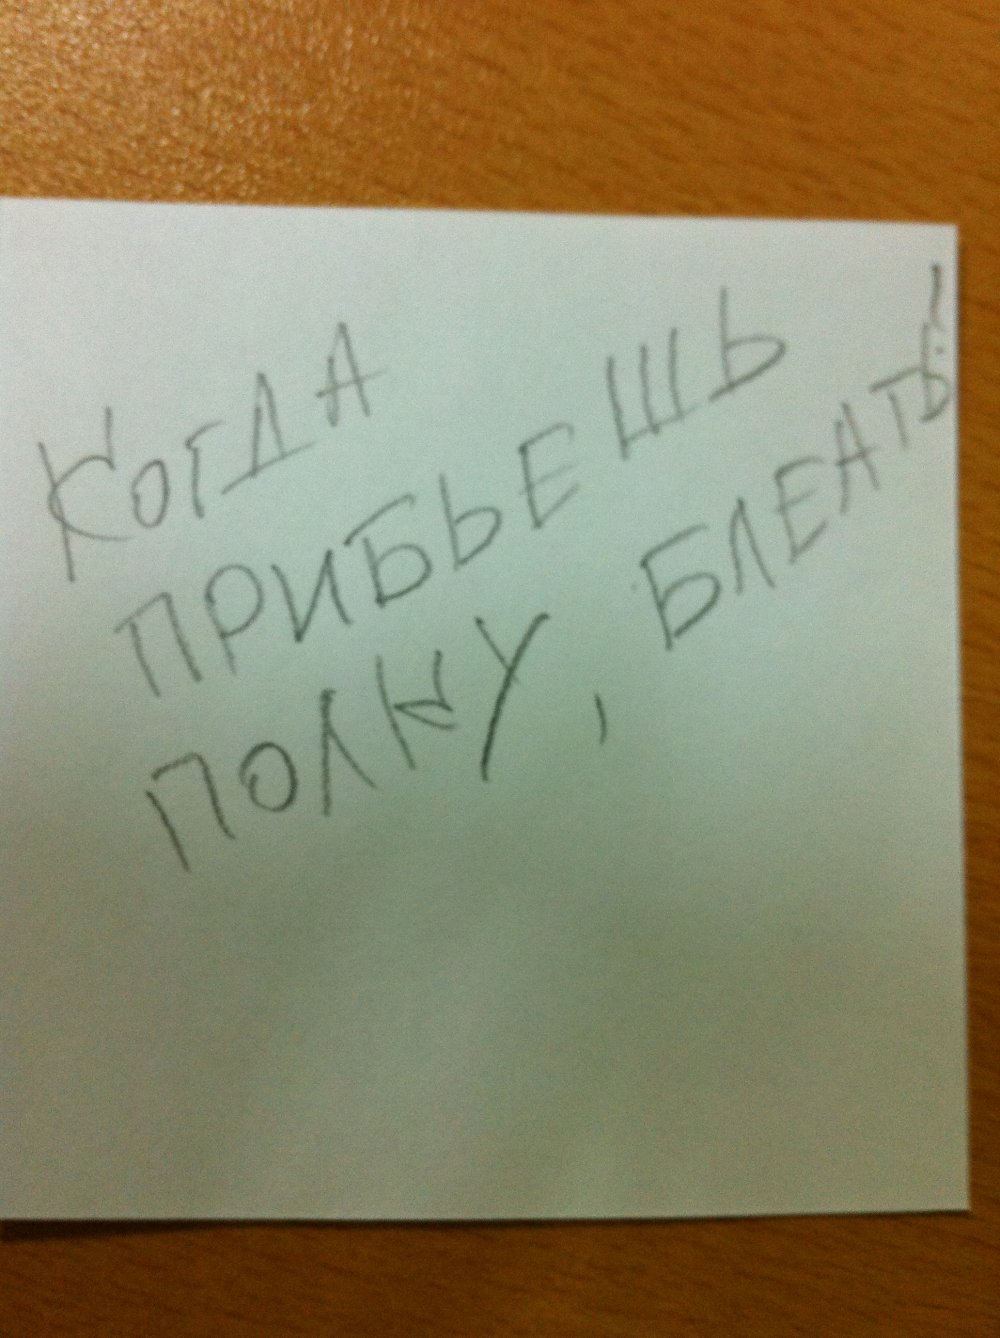 КОГДА
ПРИБЬЕШЬ
ПОЛКУ, БЛЕАТЬ!